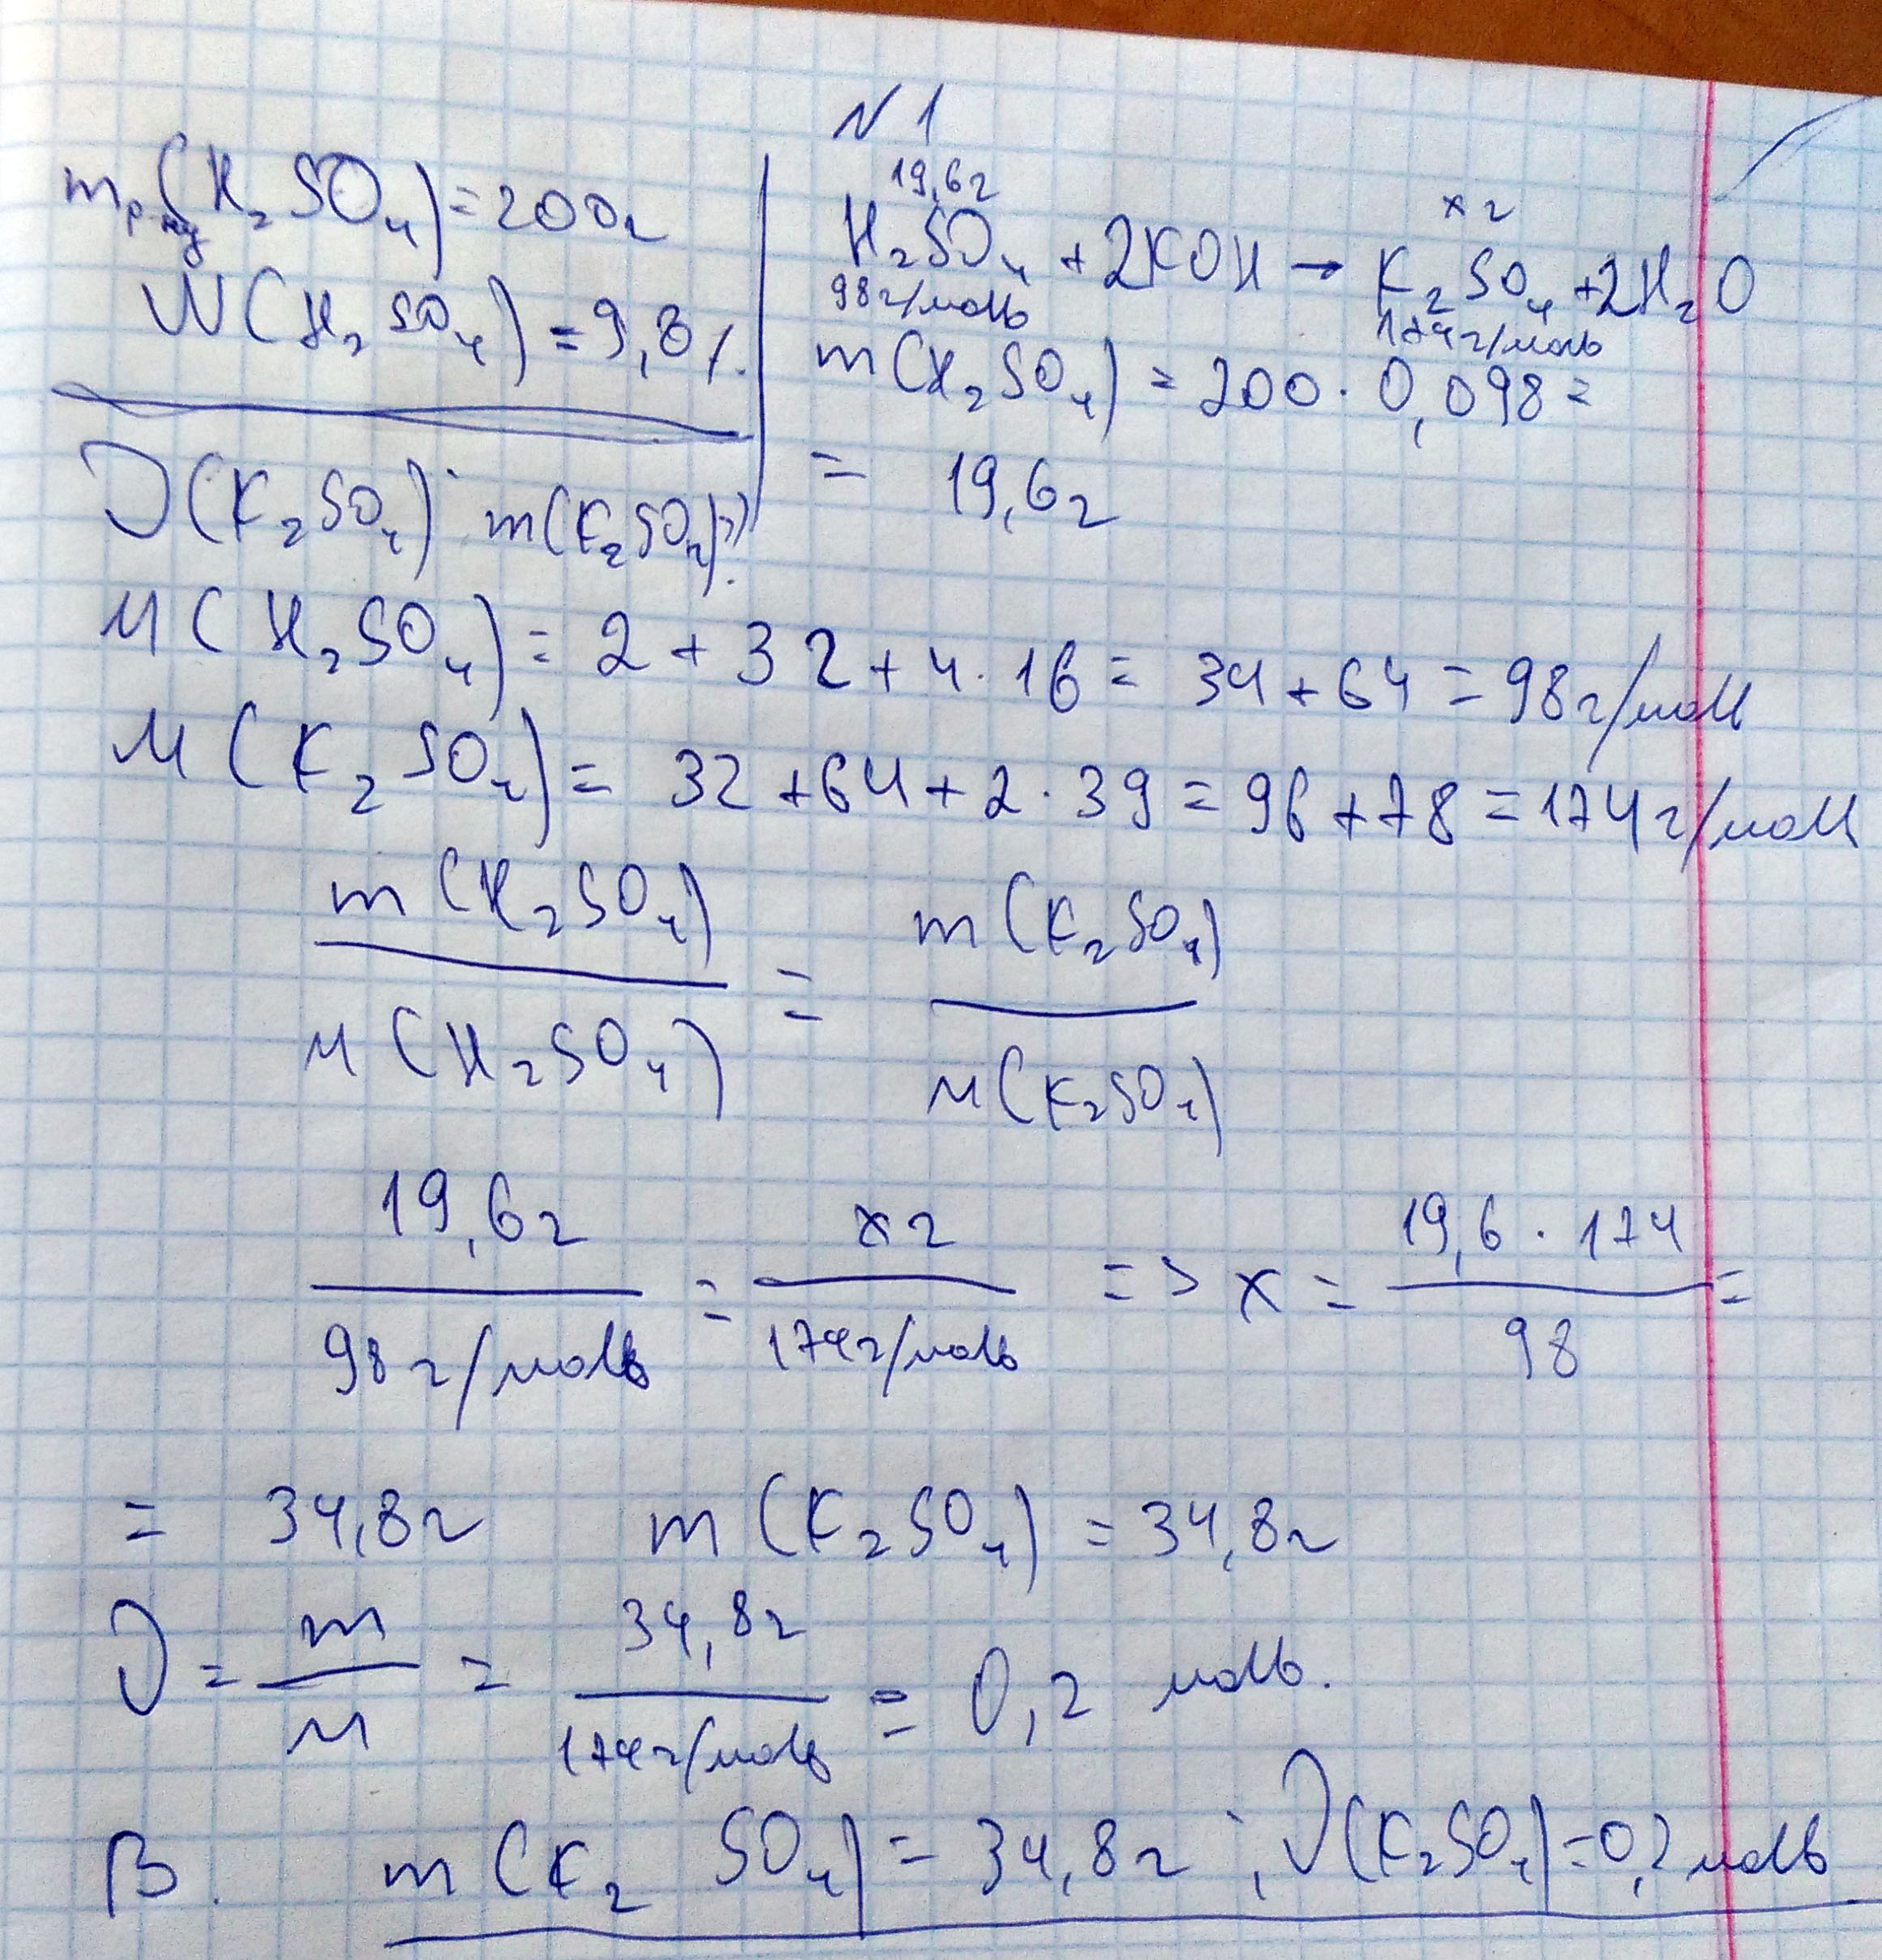 N1
m р-ну (H₂SO₄) = 200г
W(H₂SO₄) = 9,8%
ν(K₂SO₄) - m(K₂SO₄)?
19,6г xг
H₂SO₄ + 2KOH → K₂SO₄ + 2H₂O
98г/моль 174г/моль
m(H₂SO₄) = 200 · 0,098 =
= 19,6г
M(H₂SO₄) = 2 + 32 + 4 · 16 = 34 + 64 = 98г/моль
M(K₂SO₄) = 32 + 64 + 2 · 39 = 96 + 78 = 174г/моль
m(H₂SO₄) / M(H₂SO₄) = m(K₂SO₄) / M(K₂SO₄)
19,6г / 98г/моль = xг / 174г/моль => x = 19,6 · 174 / 98 =
= 34,8г m(K₂SO₄) = 34,8г
ν = m / M = 34,8г / 174г/моль = 0,2 моль.
В. m(K₂SO₄) = 34,8г ; ν(K₂SO₄) = 0,2 моль